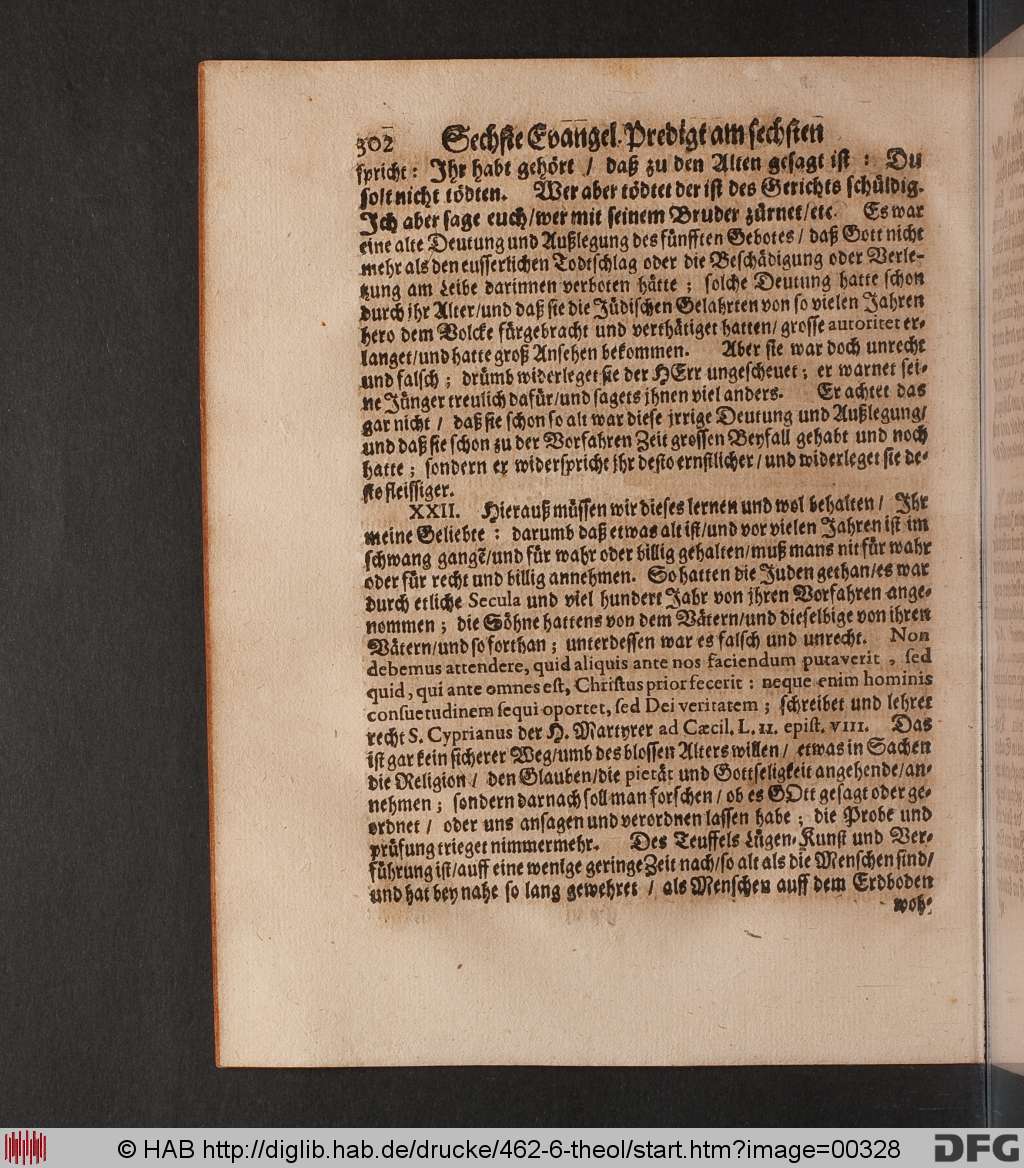 302 Sechste Evangel. Predigt am sechsten
spricht: Ihr habt gehört / daß zu den Alten gesagt ist : Du
solt nicht tödten. Wer aber tödtet der ist des Gerichts schüldig.
Ich aber sage euch/wer mit seinem Bruder zürnet/etc. Es war
eine alte Deutung und Außlegung des fünfften Gebotes / daß Gott nicht
mehr als den eusserlichen Todtschlag oder die Beschädigung oder Verle-
tzung am Leibe darinnen verboten hätte ; solche Deutung hatte schon
durch ihr Alter/und daß sie die Jüdischen Gelahrten von so vielen Jahren
hero dem Volcke fürgebracht und verthätiget hatten/ grosse autoritet er-
langet/und hatte groß Ansehen bekommen. Aber sie war doch unrecht
und falsch ; drümb widerleget sie der HErr ungescheuet ; er warnet sei-
ne Jünger treulich dafür/und sagets jhnen viel anders. Er achtet das
gar nicht / daß sie schon so alt war diese jrrige Deutung und Außlegung/
und daß sie schon zu der Vorfahren Zeit grossen Beyfall gehabt und noch
hatte ; sondern er widerspricht jhr desto ernstlicher / und widerleget sie de-
sto fleissiger.
XXII. Hierauß müssen wir dieses lernen und wol behalten / Ihr
meine Geliebte : darumb daß etwas alt ist/und vor vielen Jahren ist im
schwang gangē/und für wahr oder billig gehalten/muß mans nit für wahr
oder für recht und billig annehmen. So hatten die Juden gethan/es war
durch etliche Secula und viel hundert Jahr von jhren Vorfahren ange-
nommen ; die Söhne hattens von dem Vätern/und dieselbige von ihren
Vätern/und so forthan ; unterdessen war es falsch und unrecht. Non
debemus attendere, quid aliquis ante nos faciendum putaverit , sed
quid, qui ante omnes est, Christus prior fecerit : neque enim hominis
consuetudinem sequi oportet, sed Dei veritatem ; schreibet und lehret
recht S. Cyprianus der H. Martyrer ad Cæcil. L. II. epist. VIII. Das
ist gar kein sicherer Weg/umb des blossen Alters willen / etwas in Sachen
die Religion / den Glauben/die pietät und Gottseligkeit angehende/an-
nehmen ; sondern darnach soll man forschen / ob es GOtt gesagt oder ge-
ordnet / oder uns ansagen und verordnen lassen habe ; die Probe und
prüfung trieget nimmermehr. Des Teuffels Lügen-Kunst und Ver-
führung ist/auff eine wenige geringe Zeit nach/so alt als die Menschen sind/
und hat bey nahe so lang gewehret / als Menschen auff dem Erdboden
woh-
© HAB http://diglib.hab.de/drucke/462-6-theol/start.htm?image=00328
DFG